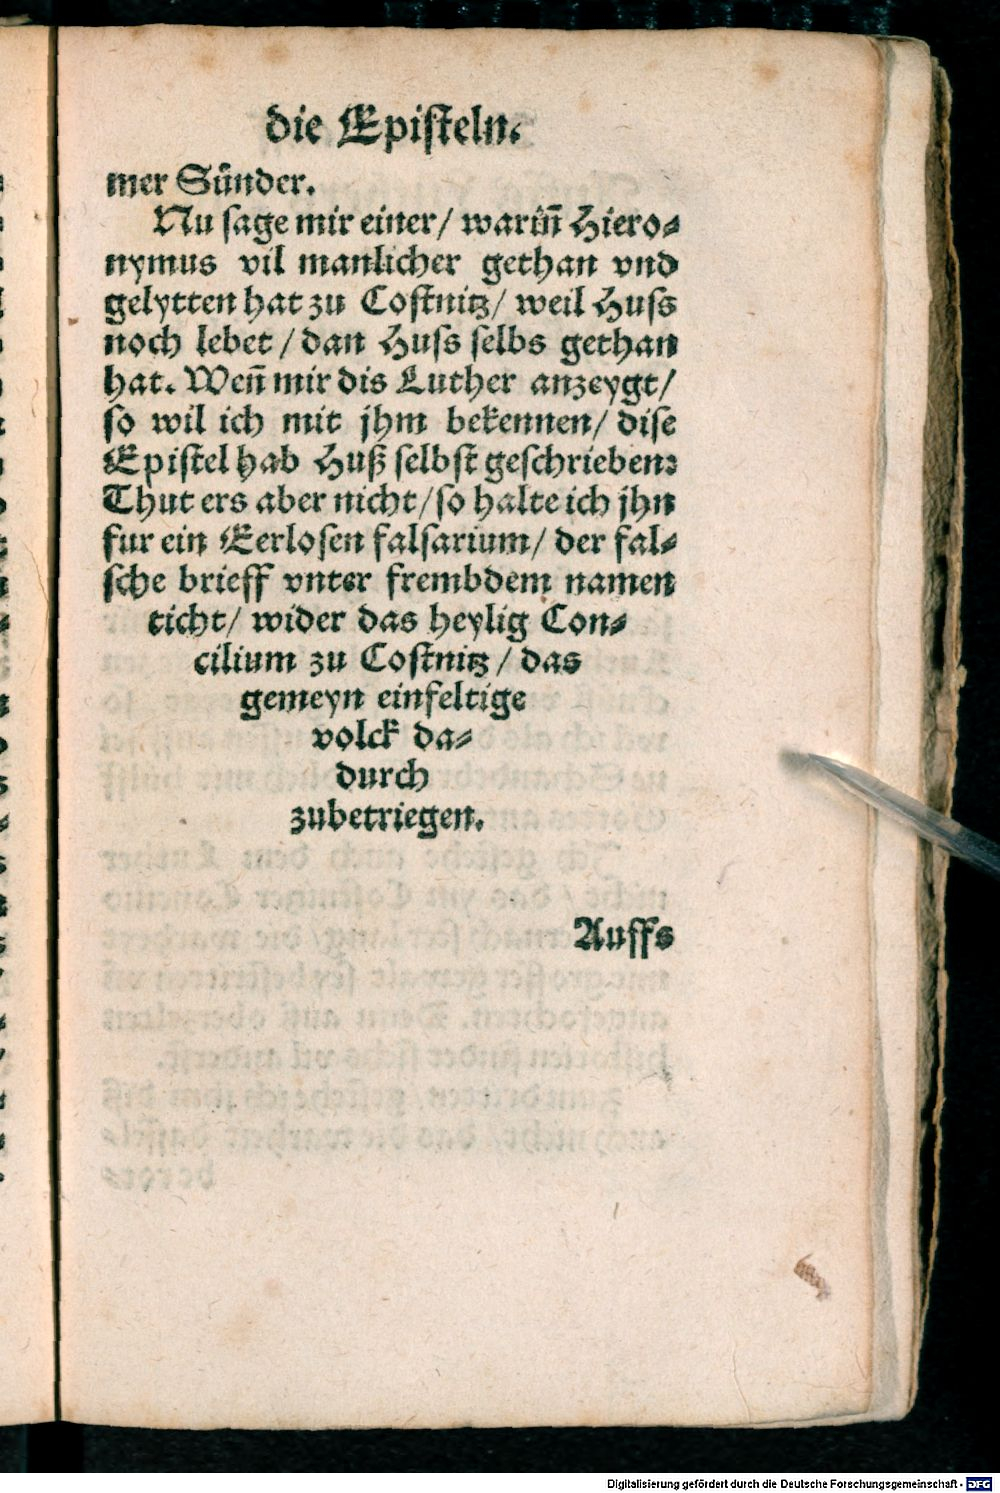 die Episteln.
mer Sünder.
Nu sage mir einer/ warin̄ Hiero-
nymus vil manlicher gethan vnd
gelytten hat zu Costnitz/ weil Huss
noch lebet/ dan Huss selbs gethan
hat. Wen̄ mir dis Luther anzeygt/
so wil ich mit jhm bekennen/ dise
Epistel hab Huß selbst geschrieben:
Thut ers aber nicht/ so halte ich jhn
fur ein Eerlosen falsarium/ der fal-
sche brieff vnter frembdem namen
ticht/ wider das heylig Con-
cilium zu Costnitz/ das
gemeyn einfeltige
volck da-
durch
zubetriegen.
Auffs
Digitalisierung gefördert durch die Deutsche Forschungsgemeinschaft - DFG